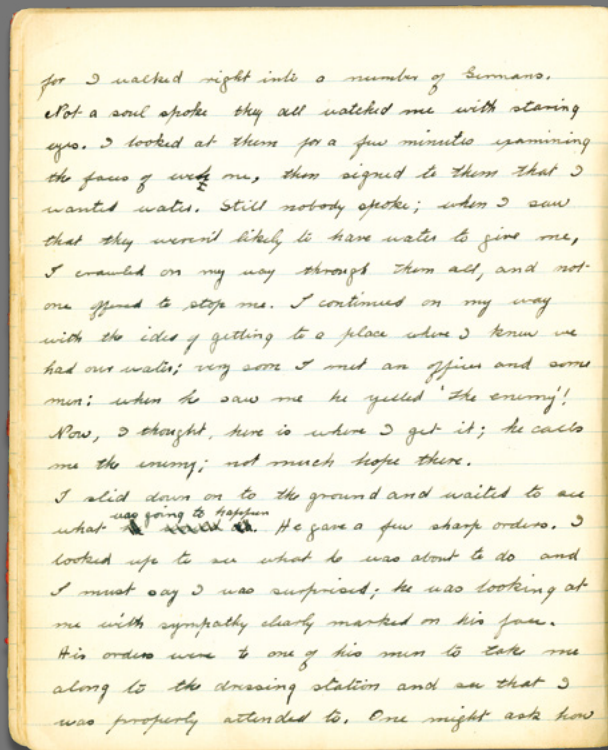 for I walked right into a number of Germans.
Not a soul spoke they all watched me with staring
eyes. I looked at them for a few minutes examining
the faces of each one, then signed to them that I
wanted water. Still nobody spoke; when I saw
that they weren't likely to have water to give me,
I crawled on my way through them all, and not
one offered to stop me. I continued on my way
with the idea of getting to a place where I knew we
had our water; very soon I met an officer and some
men: when he saw me he yelled 'the enemy'!
Now, I thought, here is where I get it; he calls
me the enemy; not much hope there.
I slid down on to the ground and waited to see
was going to happen
what . He gave a few sharp orders. I
looked up to see what he was about to do and
I must say I was surprised; he was looking at
me with sympathy clearly marked on his face.
His orders were to one of his men to take me
along to the dressing station and see that I
was properly attended to. One might ask how